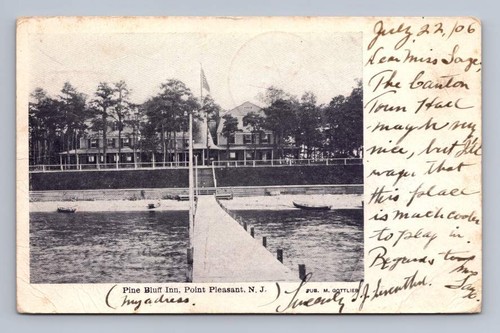 July 22, '06
Dear Miss Saze,
The Canton
Town Hall
may be my
nice, but I'll
wager that
this place
is much cooler
to play in.
Regards to
Mrs
Saze.
Pine Bluff Inn, Point Pleasant, N. J.
PUB. M. GOTTLIEB
(My adress.)
Sincerely